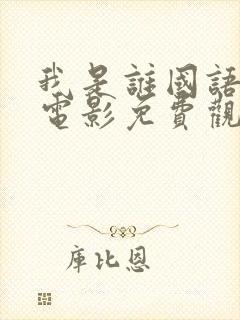 我是誰國語
電影免費觀
庫比恩